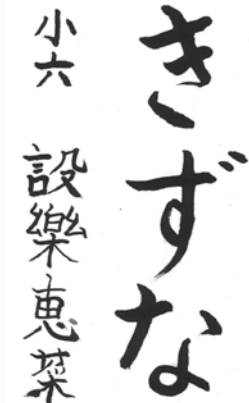 きずな
小六 設樂恵菜